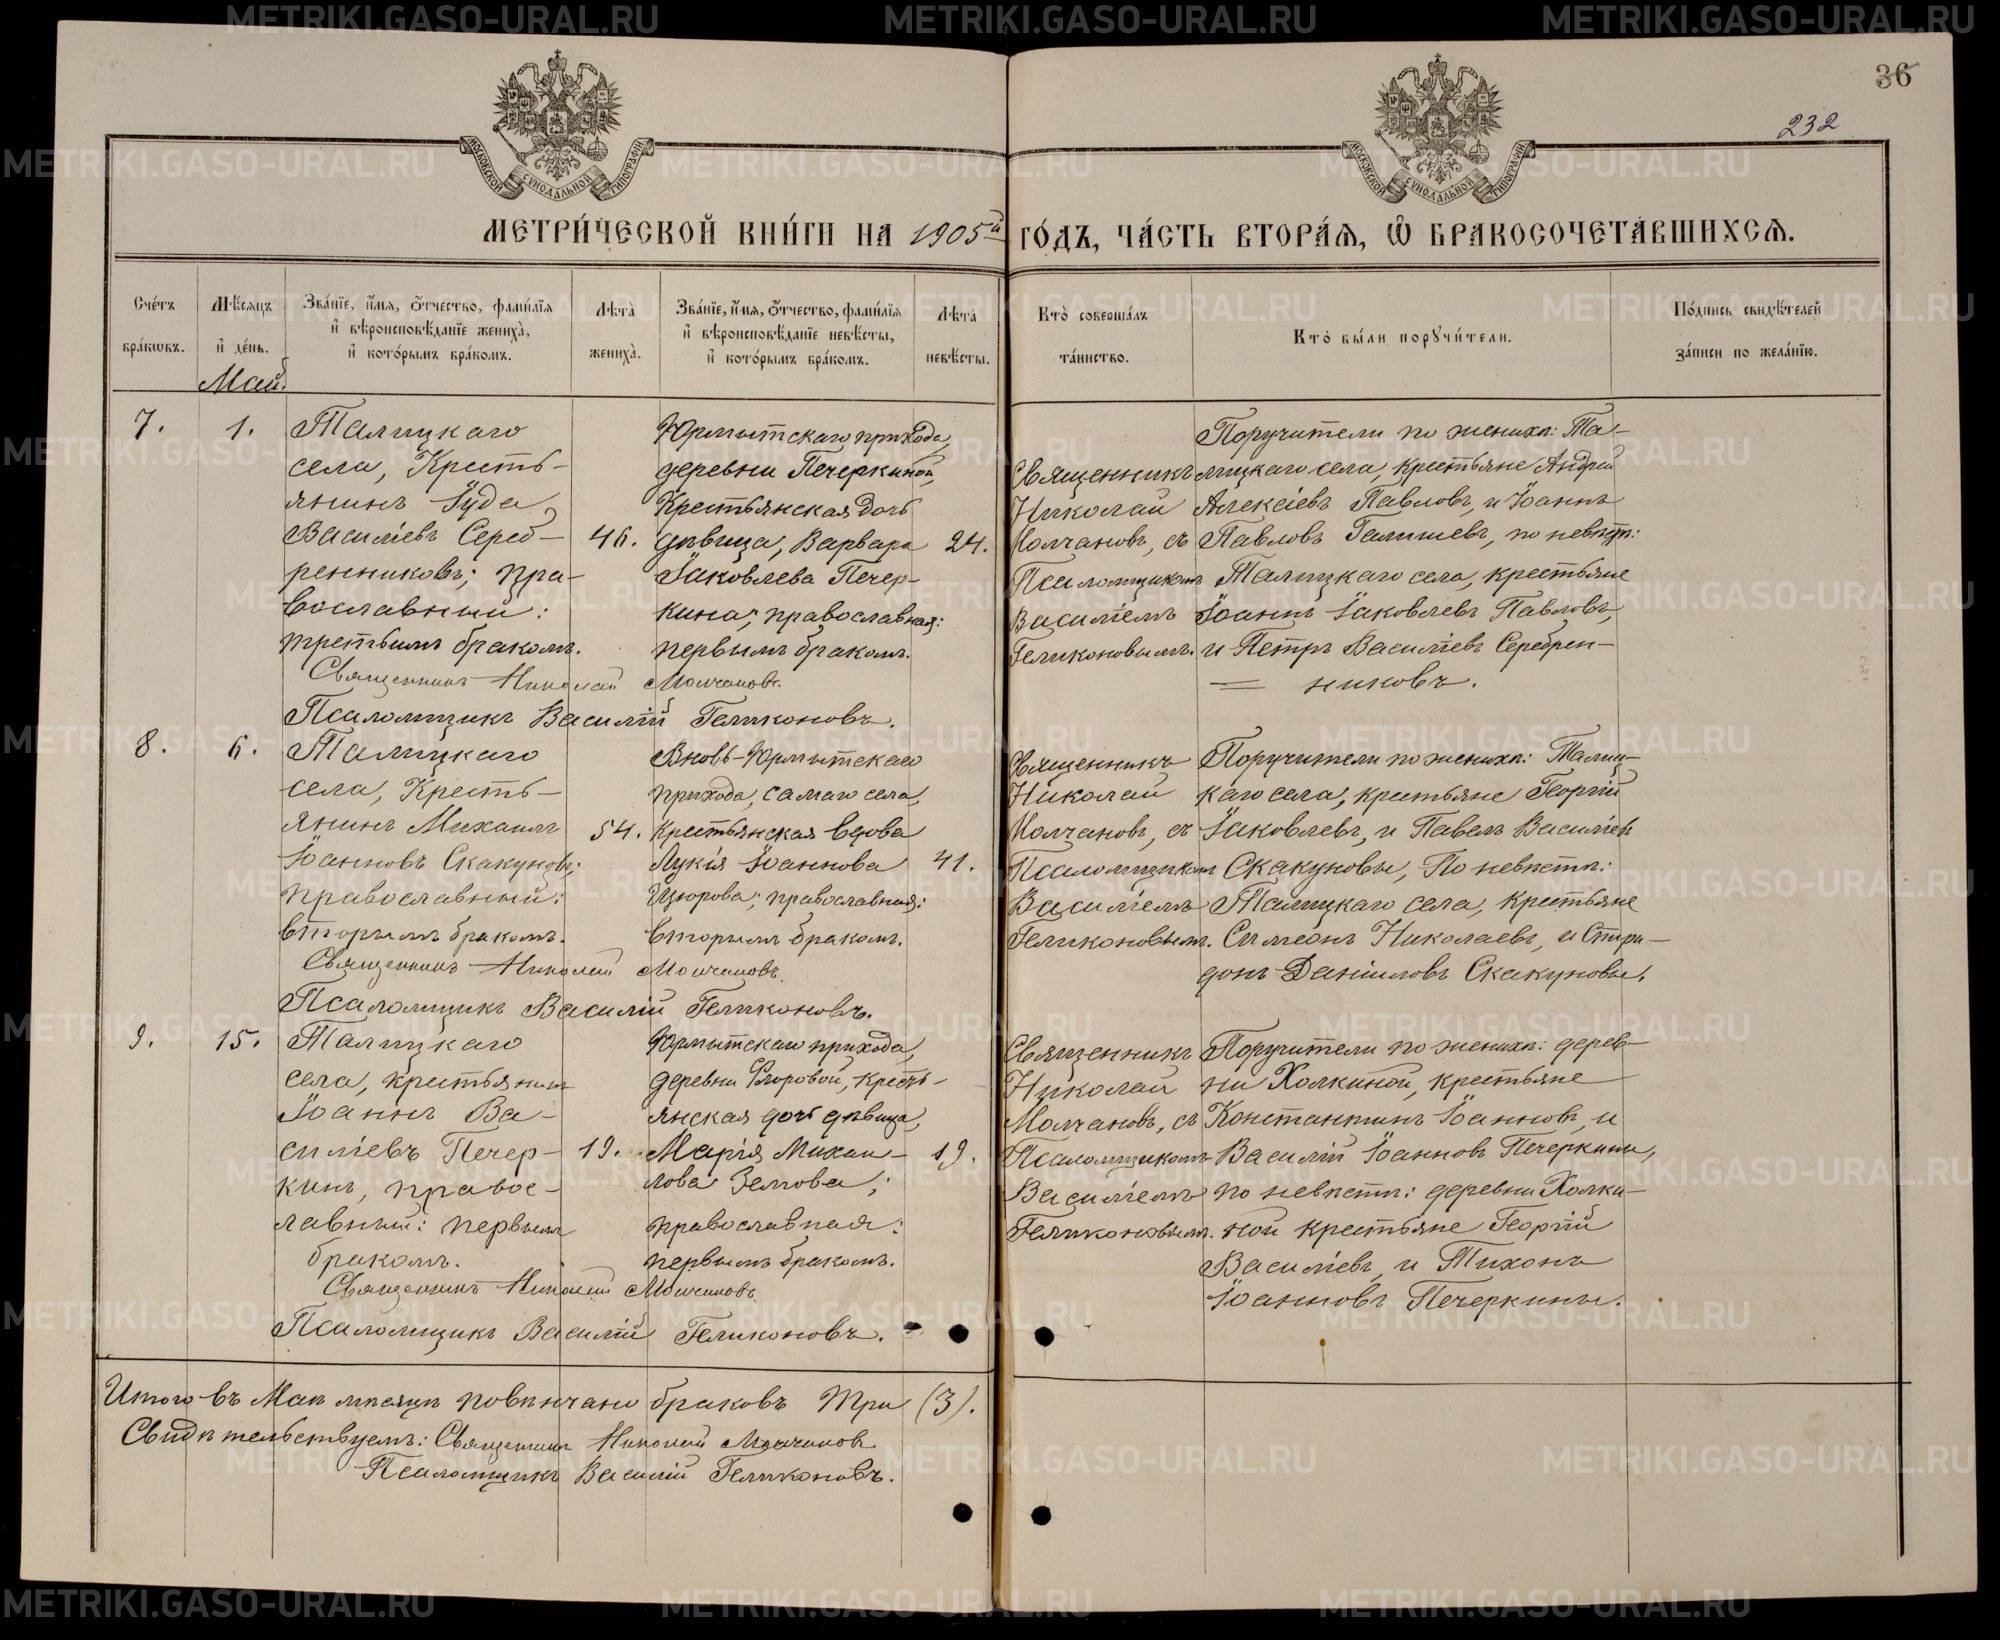 36
232
МОСКОВСКОЙ СѴНОДАЛЬНОЙ ТИПОГРАФІИ
МОСКОВСКОЙ СѴНОДАЛЬНОЙ ТИПОГРАФІИ
МЕТРИ́ЧЕСКОЙ КНИ́ГИ НА 1905й ГО́ДЪ, ЧА́СТЬ ВТОРА́Я, Ѽ БРАКОСОЧЕТА́ВШИХСЯ.
Сче́тъ бра́кѡвъ.
Мѣ́сяцъ и҆ де́нь.
Зва́нїе, и҆́мя, ѻ҆́тчество, фами́лїя
и҆ вѣроисповѣ́данїе жениха̀,
и҆ кото́рымъ бра́комъ.
Лѣта̀ жениха̀.
Зва́нїе, и҆́мя, ѻ҆́тчество, фами́лїя
и҆ вѣроисповѣ́данїе невѣ́сты,
и҆ кото́рымъ бра́комъ.
Лѣта̀ невѣ́сты.
Кто̀ соверша́лъ та́инство.
Кто̀ бы́ли порꙋчи́тели.
По́дпись свидѣ́телей
за́писи по жела́нїю.
Май.
7.
1.
Талицкаго
села, Кресть-
янинъ Іуда
Василіевъ Сереб-
ренниковъ; пра-
вославный:
третьимъ бракомъ.
46.
Юрмытскаго прихода,
деревни Печеркиной,
Крестьянская дочь
дѣвица, Варвара
Іаковлева Печер-
кина; православная:
первымъ бракомъ.
24.
Священникъ
Николай
Молчановъ, съ
Псаломщикомъ
Василіемъ
Геликоновымъ.
Поручители по женихѣ: Та-
лицкаго села, крестьяне Андрей
Алексіевъ Павловъ, и Іоаннъ
Павловъ Галышевъ, по невѣст:
Талицкаго села, крестьяне
Іоаннъ Іаковлевъ Павловъ,
и Петръ Василіевъ Серебрен-
никовъ.
Священникъ Николай Молчановъ.
Псаломщикъ Василій Геликоновъ.
8.
6.
Талицкаго
села, Кресть-
янинъ Михаилъ
Іоанновъ Скакуновъ;
православный:
вторымъ бракомъ.
54.
Вновь-Юрмытскаго
прихода, самаго села,
Крестьянская вдова
Лукія Іоаннова
православная:
вторымъ бракомъ.
41.
Священникъ
Николай
Молчановъ, съ
Псаломщикомъ
Василіемъ
Геликоновымъ.
Поручители по женихѣ: Талиц-
каго села, крестьяне Георгій
Іаковлевъ, и Павелъ Василіевъ
Скакуновы, По невѣстѣ:
Талицкаго села, крестьяне
Симеонъ Николаевъ, и Спири-
донъ Даніиловъ Скакуновы.
Священникъ Николай Молчановъ
Псаломщикъ Василій Геликоновъ.
9.
15.
Талицкаго
села, крестьянинъ
Іоаннъ Ва-
силіевъ Печер-
кинъ, правос-
лавный: первымъ
бракомъ.
19.
Юрмытскаго прихода,
деревни Флоровой, кресть-
янская дочь дѣвица,
Марія Михаи-
лова Зенкова;
православная:
первымъ бракомъ.
19.
Священникъ
Николай
Молчановъ, съ
Псаломщикомъ
Василіемъ
Геликоновымъ.
Поручители по женихѣ: дерев-
ни Холкиной, крестьяне
Константинъ Іоанновъ, и
Василій Іоанновъ Печеркины,
по невѣстѣ: деревни Холки-
ной крестьяне Георгій
Василіевъ, и Тихонъ
Іоанновъ Печеркины.
Священникъ Николай Молчановъ
Псаломщикъ Василій Геликоновъ.
Итого въ Маѣ мѣсяцѣ повѣнчано браковъ три (3).
Свидѣтельствуемъ: Священникъ Николай Молчановъ
Псаломщикъ Василій Геликоновъ.
METRIKI.GASO-URAL.RU